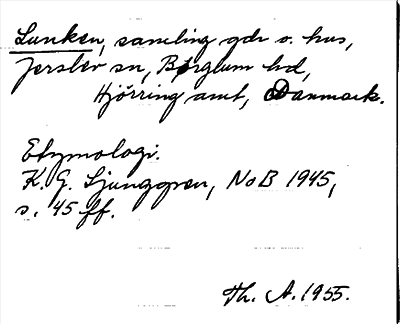 Lunken, samling gdr o. hus,
Jerslev sn, Børglum hd,
Hjørring amt, Danmark.
Etymologi.
K. G. Ljunggren, NoB 1945,
s. 45 ff.
Th. A. 1955.